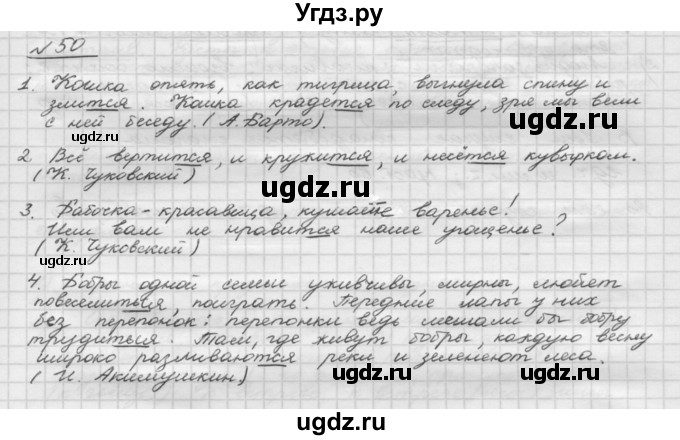 Угдз.ру
№50
1. Кошка опять, как тигрица, выгнула спину и
злится. Кошка крадётся по следу, зря мы вели
с ней беседу. (А. Барто).
ugdz.ru
ugdz.ru
2 Всё вертится, и кружится, и несётся кувырком.
(К. Чуковский)
ugdz.ru
3. Бабочка-красавица, кушайте варенье!
Или вам не нравится наше угощенье?
(К. Чуковский)
ugdz.ru
ugdz.ru
4. Бобры одной семьи уживчивы, мирны, любят
повеселиться, поиграть. Передние лапы у них
без перепонок: перепонки ведь мешали бы бобру
трудиться. Там, где живут бобры, каждую весну
широко разливаются реки и зеленеют леса.
(И. Акимушкин)
ugdz.ru
ugdz.ru
ugdz.ru
ugdz.ru